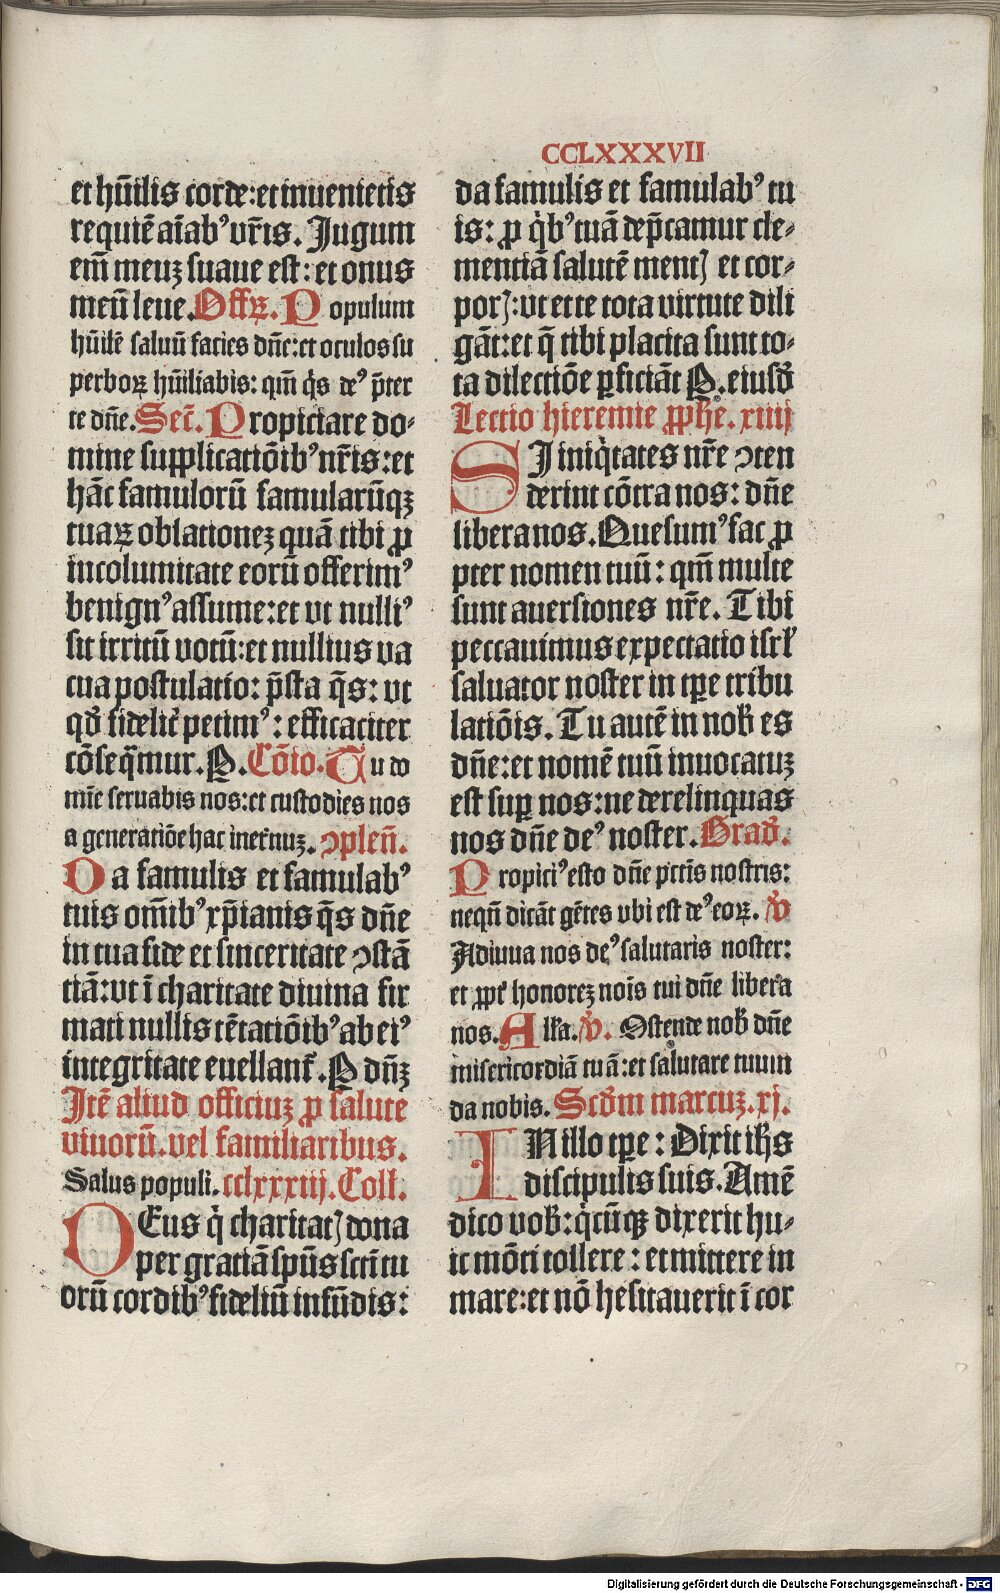 CCLXXXVII
et hūilis corde: et inuenietis
requiē aīab⁹ vr̄is. Jugum
em̄ meuꝫ suaue est: et onus
meū leue. Offꝝ. Populum
hūilē saluū facies dn̄e: et oculos su
perboꝝ hūiliabis: qm̄ q̇s de⁹ p̄ter
te dn̄e. Secr̄. Propiciare do⸗
mine supplicatiōib⁹ nr̄is: et
hāc famulorū famularūqꝫ
tuaꝝ oblationeꝫ quā tibi ꝓ
incolumitate eorū offerim⁹
benign⁹ assume: et vt nulli⁹
sit irritū votū: et nullius va
cua postulatio: p̄sta q̄s: vt
qď fidelit̉ petim⁹: efficaciter
cōseq̄mur. P. Cōio. Tu do
mīe seruabis nos: et custodies nos
a generatiōe hac ī eternuꝫ. ꝯplen̄.
Da famulis et famulab⁹
tuis om̄ib⁹ xp̄ianis q̄s dn̄e
in tua fide et sinceritate ꝯstā
tiā: vt ī charitate diuina fir
mati nullis tētatiōib⁹ ab ei⁹
integritate euellant᷑. P dn̄ꝫ
Itē aliud officiuꝫ ꝓ salute
viuorū. vel familiaribus.
Salus populi. cclxxxiij. Coll.
DEus q̇ charitatꝭ dona
per gratiā sp̄us sctī tu
orū cordib⁹ fideliū infūdis:
da famulis et famulab⁹ tu
is: ꝓ q̇b⁹ tuā dep̄camur cle⸗
mentiā salutē mentꝭ et cor⸗
porꝭ: vt et te tota virtute dili
gāt: et q̄ tibi placita sunt to⸗
ta dilectiōe ꝑficiāt P. eiusď
Lectio hieremie ꝓph̄e. xiiij
SJ iniq̇tates nr̄e ꝯten
derint cōtra nos: dn̄e
libera nos. Quesum⁹ fac ꝓ
pter nomen tuū: qm̄ multe
sunt auersiones nr̄e. Tibi
peccauimus expectatio isrł
saluator noster in tp̄e tribu
latiōis. Tu autē in nob̄ es
dn̄e: et nomē tuū inuocatuꝫ
est suꝑ nos: ne derelinquas
nos dn̄e de⁹ noster. Graď.
Propici⁹ esto dn̄e pctīs nostris:
neqū dicāt gētes vbi est de⁹ eoꝝ. ℣
Adiuua nos de⁹ salutaris noster:
et ꝓpt̉ honoreꝫ noīs tui dn̄e libera
nos. Alła. ℣. Ostende nob̄ dn̄e
misericordiā tuā: et salutare tuum
da nobis. Scďm marcuꝫ. xj.
IN illo tp̄e: Dixit ih̄s
discipulis suis. Amē
dico vob̄: q̇cūqꝫ dixerit hu⸗
ic mōti tollere: et mittere in
mare: et nō hesitauerit ī cor
Digitalisierung gefördert durch die Deutsche Forschungsgemeinschaft - DFG